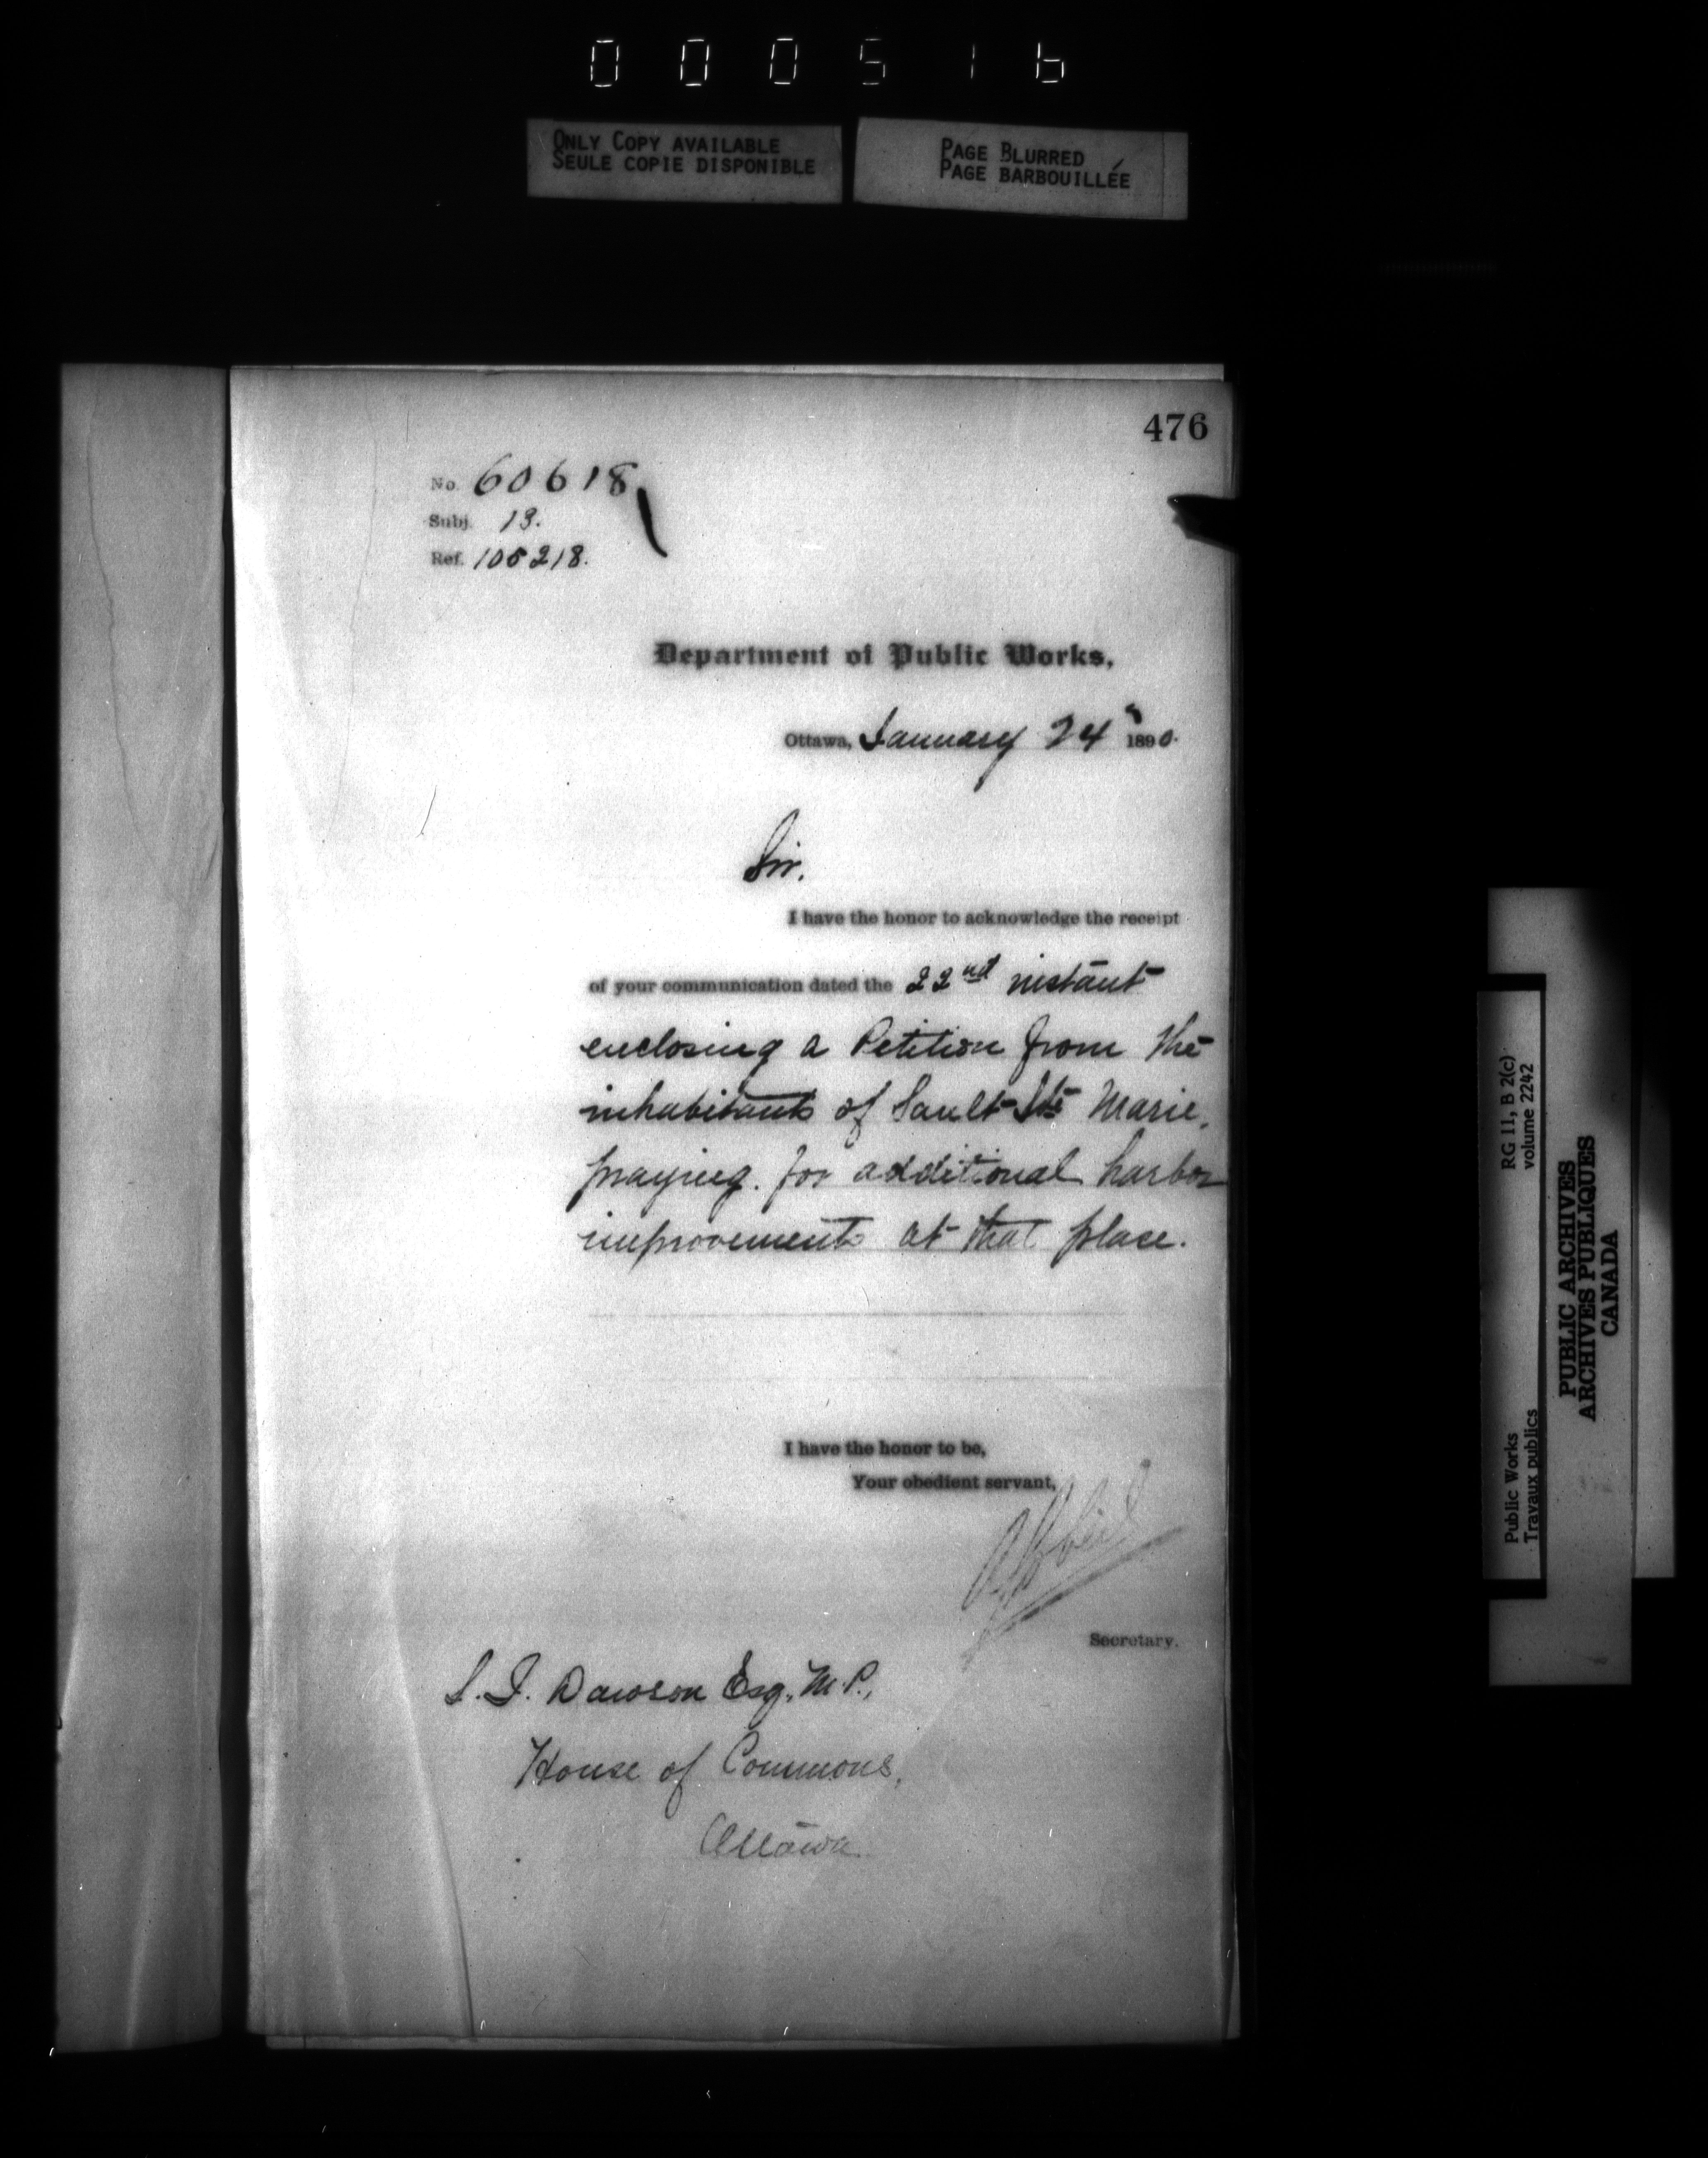 000516
ONLY COPY AVAILABLE
SEULE COPIE DISPONIBLE
PAGE BLURRED
PAGE BARBOUILLÉE
476
No. 60618
Subj. 13.
Ref. 105218.
Department of Public Works,
Ottawa, January 24 1890.
Sir.
I have the honor to acknowledge the receipt
of your communication dated the 22nd instant
enclosing a Petition from the
inhabitants of Sault Ste Marie,
praying for additional harbor
improvements at that place.
I have the honor to be,
Your obedient servant,
Secretary.
S. J. Dawson Esq. M.P.,
House of Commons,
Ottawa
RG 11, B 2(c)
volume 2242
Public Works
Travaux publics
PUBLIC ARCHIVES
ARCHIVES PUBLIQUES
CANADA